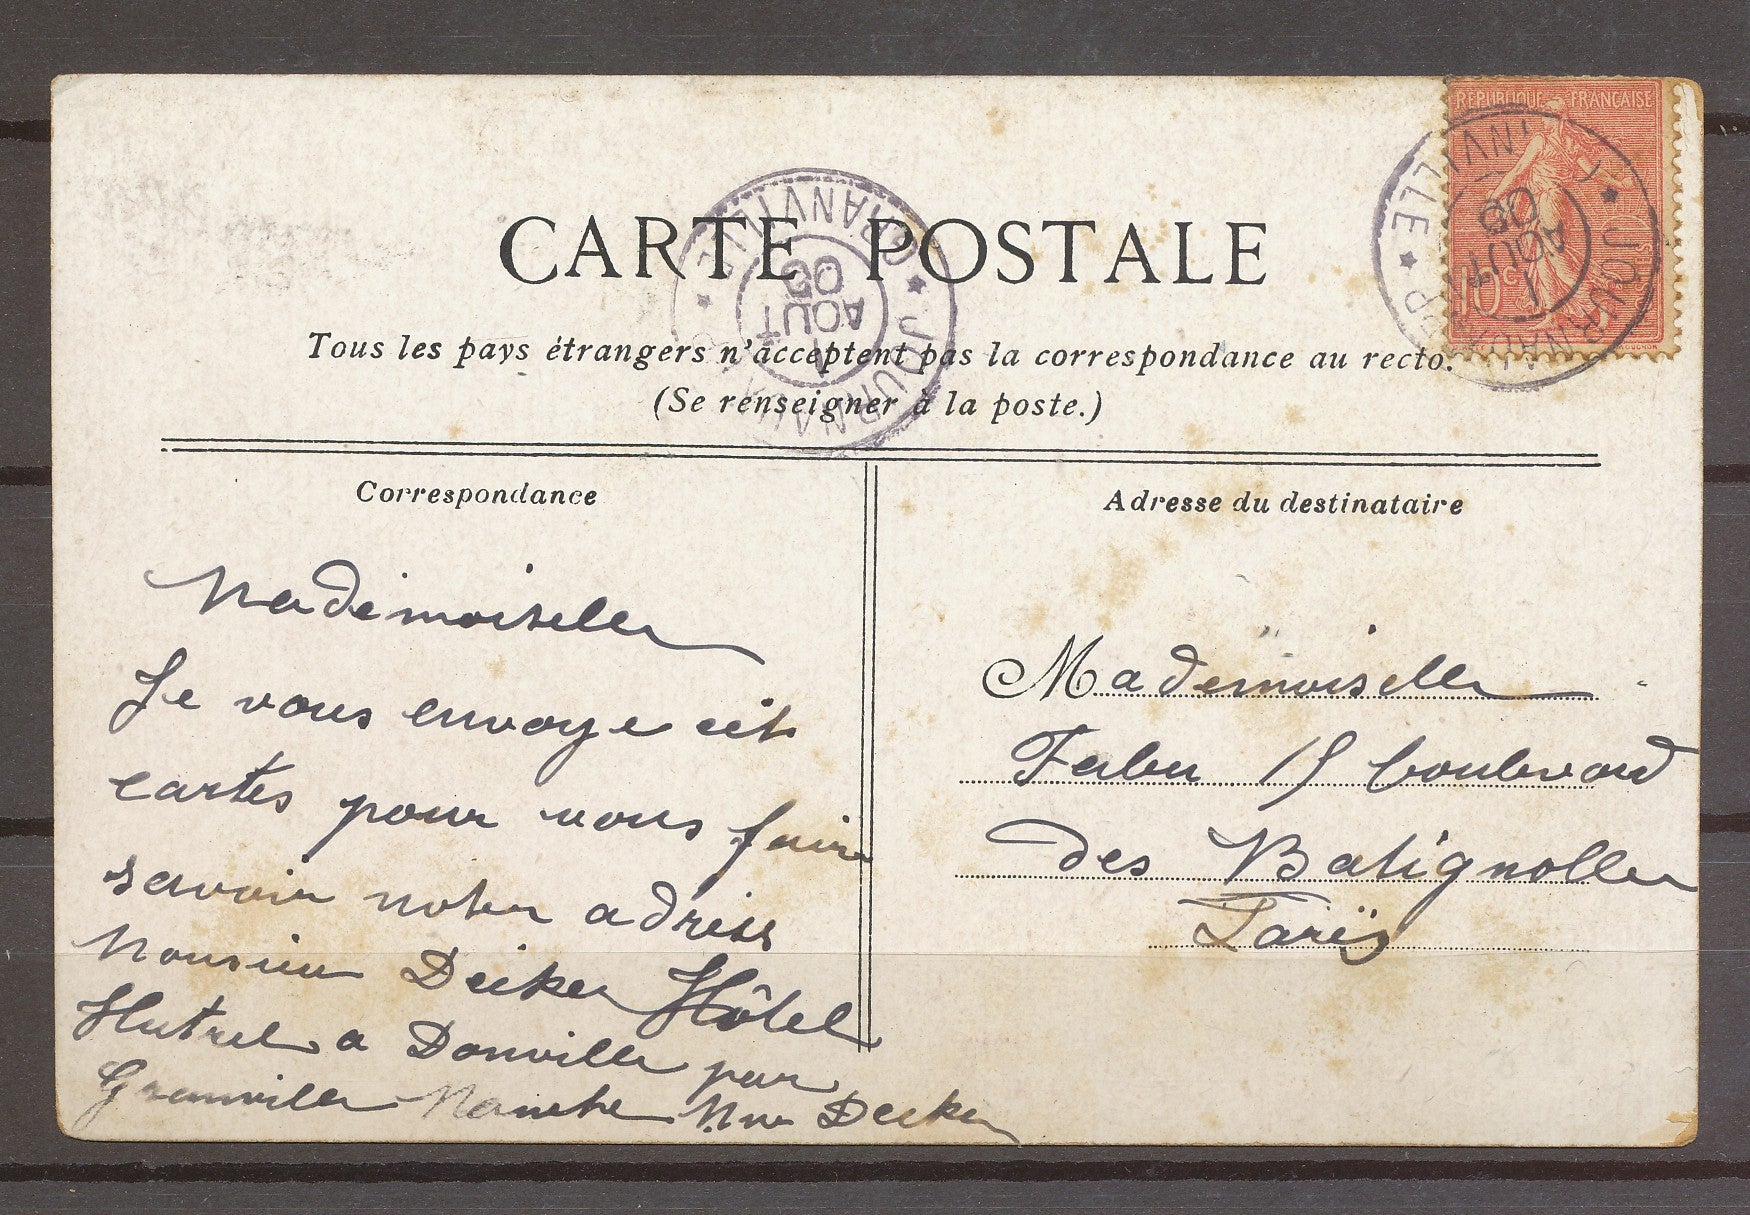 RÉPUBLIQUE FRANÇAISE
10c
JOURNAUX PP GRANVILLE
1
AOUT
05
JOURNAUX PP GRANVILLE
1
AOUT
05
CARTE POSTALE
Tous les pays étrangers n'acceptent pas la correspondance au recto.
(Se renseigner à la poste.)
Correspondance
Mademoiselle
Je vous envoye cét
cartes pour vous faire
savoir notre adress
Monsieur Decker Hôtel
Hutrel a Donville par
Granville Manche Mme Decker
Adresse du destinataire
Mademoiselle
Faber 15 boulevard
des Batignolles
Paris